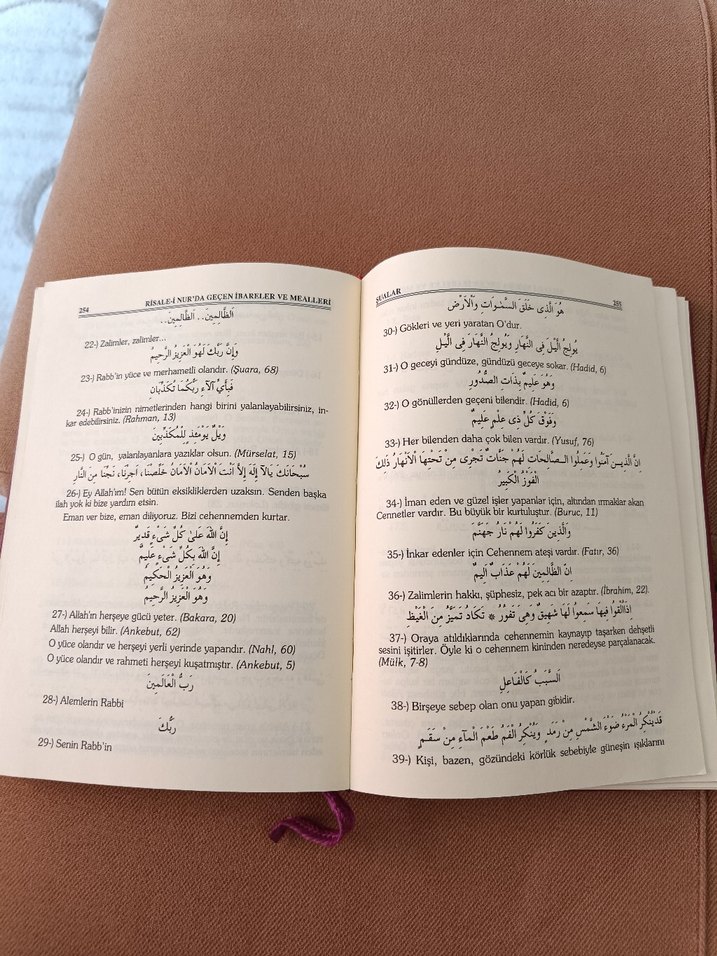 254
RİSALE-İ NUR'DA GEÇEN İBARELER VE MEALLERİ
اَلظَّالِمِينَ.. اَلظَّالِمِينَ..
22-) Zalimler, zalimler...
وَإِنَّ رَبَّكَ لَهُوَ الْعَزِيزُ الرَّحِيمُ
23-) Rabb'in yüce ve merhametli olandır. (Şuara, 68)
فَبِأَىِّ آلَاۤءِ رَبِّكُمَا تُكَذِّبَانِ
24-) Rabb'inizin nimetlerinden hangi birini yalanlayabilirsiniz, in-
kar edebilirsiniz. (Rahman, 13)
وَيْلٌ يَوْمَئِذٍ لِلْمُكَذِّبِينَ
25-) O gün, yalanlayanlara yazıklar olsun. (Mürselat, 15)
سُبْحَانَكَ يَالآ إِلَهَ إِلاَّ أَنْتَ اْلأَمَانُ اْلأَمَانُ خَلِّصْنَا، أَجِرْنَا، نَجِّنَا مِنَ النَّارِ
26-) Ey Allah'ım! Sen bütün eksikliklerden uzaksın. Senden başka
ilah yok ki bize yardım etsin.
Eman ver bize, eman diliyoruz. Bizi cehennemden kurtar.
إِنَّ اللهَ عَلَىٰ كُلِّ شَىْءٍ قَدِيرٌ
إِنَّ اللهَ بِكُلِّ شَىْءٍ عَلِيمٌ
وَهُوَ الْعَزِيزُ الْحَكِيمُ
وَهُوَ الْعَزِيزُ الرَّحِيمُ
27-) Allah'ın herşeye gücü yeter. (Bakara, 20)
Allah herşeyi bilir. (Ankebut, 62)
O yüce olandır ve herşeyi yerli yerinde yapandır. (Nahl, 60)
O yüce olandır ve rahmeti herşeyi kuşatmıştır. (Ankebut, 5)
رَبُّ الْعَالَمِينَ
28-) Alemlerin Rabbi
رَبُّكَ
29-) Senin Rabb'in
ŞUALAR
255
هُوَ الَّذِى خَلَقَ السَّمٰوَاتِ وَاْلأَرْضَ
30-) Gökleri ve yeri yaratan O'dur.
يُولِجُ الَّيْلَ فِى النَّهَارِ وَيُولِجُ النَّهَارَ فِى الَّيْلِ
31-) O geceyi gündüze, gündüzü geceye sokar. (Hadid, 6)
وَهُوَ عَلِيمٌ بِذَاتِ الصُّدُورِ
32-) O gönüllerden geçeni bilendir. (Hadid, 6)
وَفَوْقَ كُلِّ ذِى عِلْمٍ عَلِيمٌ
33-) Her bilenden daha çok bilen vardır. (Yusuf, 76)
اِنَّ الَّذِينَ آمَنُوا وَعَمِلُوا الصَّالِحَاتِ لَهُمْ جَنَّاتٌ تَجْرِى مِنْ تَحْتِهَا اْلأَنْهَارُ ذٰلِكَ
الْفَوْزُ الْكَبِيرُ
34-) İman eden ve güzel işler yapanlar için, altından ırmaklar akan
Cennetler vardır. Bu büyük bir kurtuluştur. (Buruc, 11)
وَالَّذِينَ كَفَرُوا لَهُمْ نَارُ جَهَنَّمَ
35-) İnkar edenler için Cehennem ateşi vardır. (Fatır, 36)
اِنَّ الظَّالِمِينَ لَهُمْ عَذَابٌ اَلِيمٌ
36-) Zalimlerin hakkı, şüphesiz, pek acı bir azaptır. (İbrahim, 22).
اِذَا اُلْقُوا فِيهَا سَمِعُوا لَهَا شَهِيقًا وَهِىَ تَفُورُ * تَكَادُ تَمَيَّزُ مِنَ الْغَيْظِ
37-) Oraya atıldıklarında cehennemin kaynayıp taşarken dehşetli
sesini işitirler. Öyle ki o cehennem kininden neredeyse parçalanacak.
(Mülk, 7-8)
اَلسَّبَبُ كَالْفَاعِلِ
38-) Birşeye sebep olan onu yapan gibidir.
قَدْ يُنْكِرُ الْمَرْءُ ضَوْءَ الشَّمْسِ مِنْ رَمَدٍ وَيُنْكِرُ الْفَمُ طَعْمَ الْمَاۤءِ مِنْ سَقَمٍ
39-) Kişi, bazen, gözündeki körlük sebebiyle güneşin ışıklarını